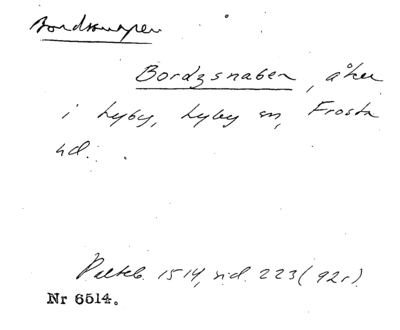 Bordsnapen
Bordzsnaben, åker
i Lyby, Lyby sn, Frosta
hd.
Palteb. 1514, sid. 223 (92r)
Nr 6514.